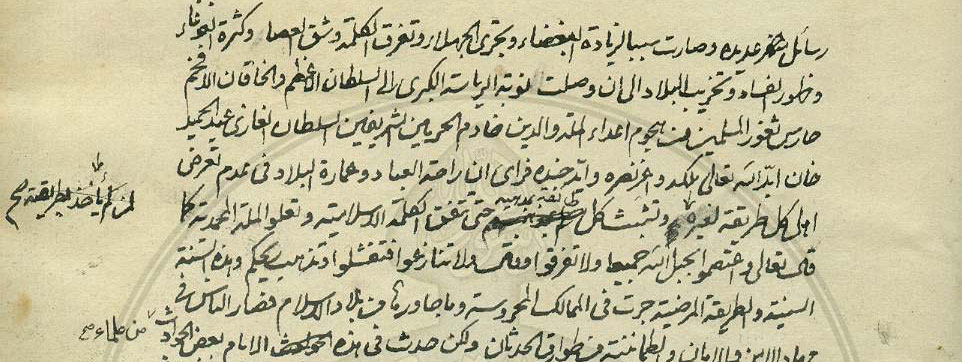 رسائل عديدة وصارت سببا لزيادة البغضاء وتجرى الجهلاء وتفرق الكلمة وشق العصاء وكثرة الغوغاء
وظهور الفساد وتخريب البلاد الى ان وصلت نوبة الرياسة الكبرى الى السلطان الاعظم والخاقان الافخم
حارس ثغور المسلمين من هجوم اعداء الملة والدين خادم الحرمين الشريفين السلطان الغازى عبد الحميد
خان ايد الله تعالى ملكه واعز نصره وايد جنده فراى ان راحة العباد وعمارة البلاد فى عدم تعرض
اهل كل طريقة لغيره وتثبت كل بطريقته حتى تتفق الكلمة الاسلامية وتعلو الملة المحمدية كما
قال تعالى واعتصموا بحبل الله جميعا ولا تفرقوا وقال ولا تنازعوا فتفشلوا وتذهب ريحكم وهذه السنة
السنية والطريقة المرضية جرت فى الممالك المحروسة وما جاورها من بلاد الاسلام فصار الناس فى
الامن والامان والطمانينة من طوارق الحدثان ولكن حدثت فى هذه الايام بعض الحوادث
بطريقته صح
من علماء صح